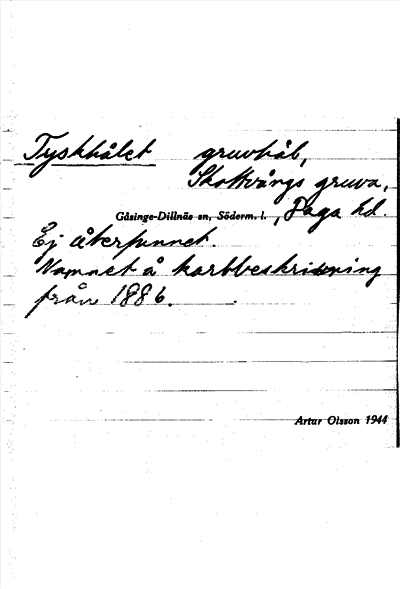 Tyskhålet gruvhål,
Skottvångs gruva,
Gåsinge-Dillnäs sn, Söderm. l., Daga hd.
Ej återfunnet.
Namnet å kartbeskrivning
från 1886.
Artur Olsson 1944